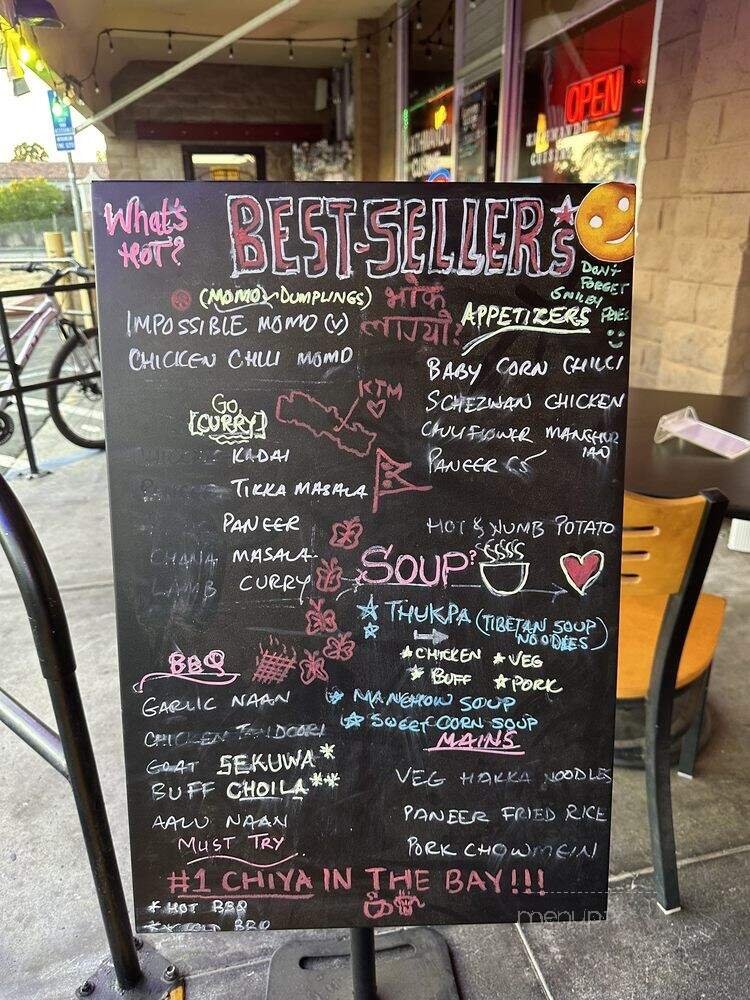 What's
HOT?
BEST-SELLERS
OPEN
DON'T
FORGET
SMILEY
FRIES
(MOMO DUMPLINGS)
IMPOSSIBLE MOMO (V)
CHICKEN CHILI MOMO
भोक
लाग्यो?
APPETIZERS
BABY CORN CHILLI
SCHEZWAN CHICKEN
CAULIFLOWER MANCHURIAN
PANEER 65
HOT & NUMB POTATO
KTM
GO,
[CURRY]
KADAI
TIKKA MASALA
PANEER
CHANA MASALA
LAMB CURRY
SOUP?
THUKPA (TIBETAN SOUP
NOODLES)
*CHICKEN *VEG
*BUFF *PORK
MANCHOW SOUP
SWEET CORN SOUP
BBQ
GARLIC NAAN
CHICKEN TANDOORI
GOAT SEKUWA*
BUFF CHOILA**
AALU NAAN
MUST TRY
MAINS
VEG HAKKA NOODLES
PANEER FRIED RICE
PORK CHOWMEIN
#1 CHIYA IN THE BAY!!!
*HOT BBQ
**COLD BBQ